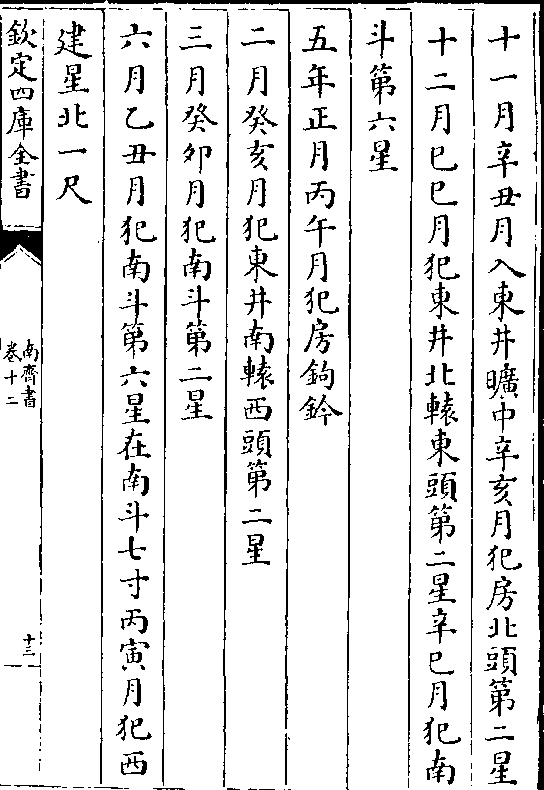 十一月辛丑月入東井曠中辛亥月犯房北頭第二星
十二月巳巳月犯東井北轅東頭第二星辛巳月犯南
斗第六星
五年正月丙午月犯房鉤鈐
二月癸亥月犯東井南轅西頭第二星
三月癸卯月犯南斗第二星
六月乙丑月犯南斗第六星在南斗七寸丙寅月犯西
建星北一尺
欽定四庫全書
南齊書
卷十二
十三